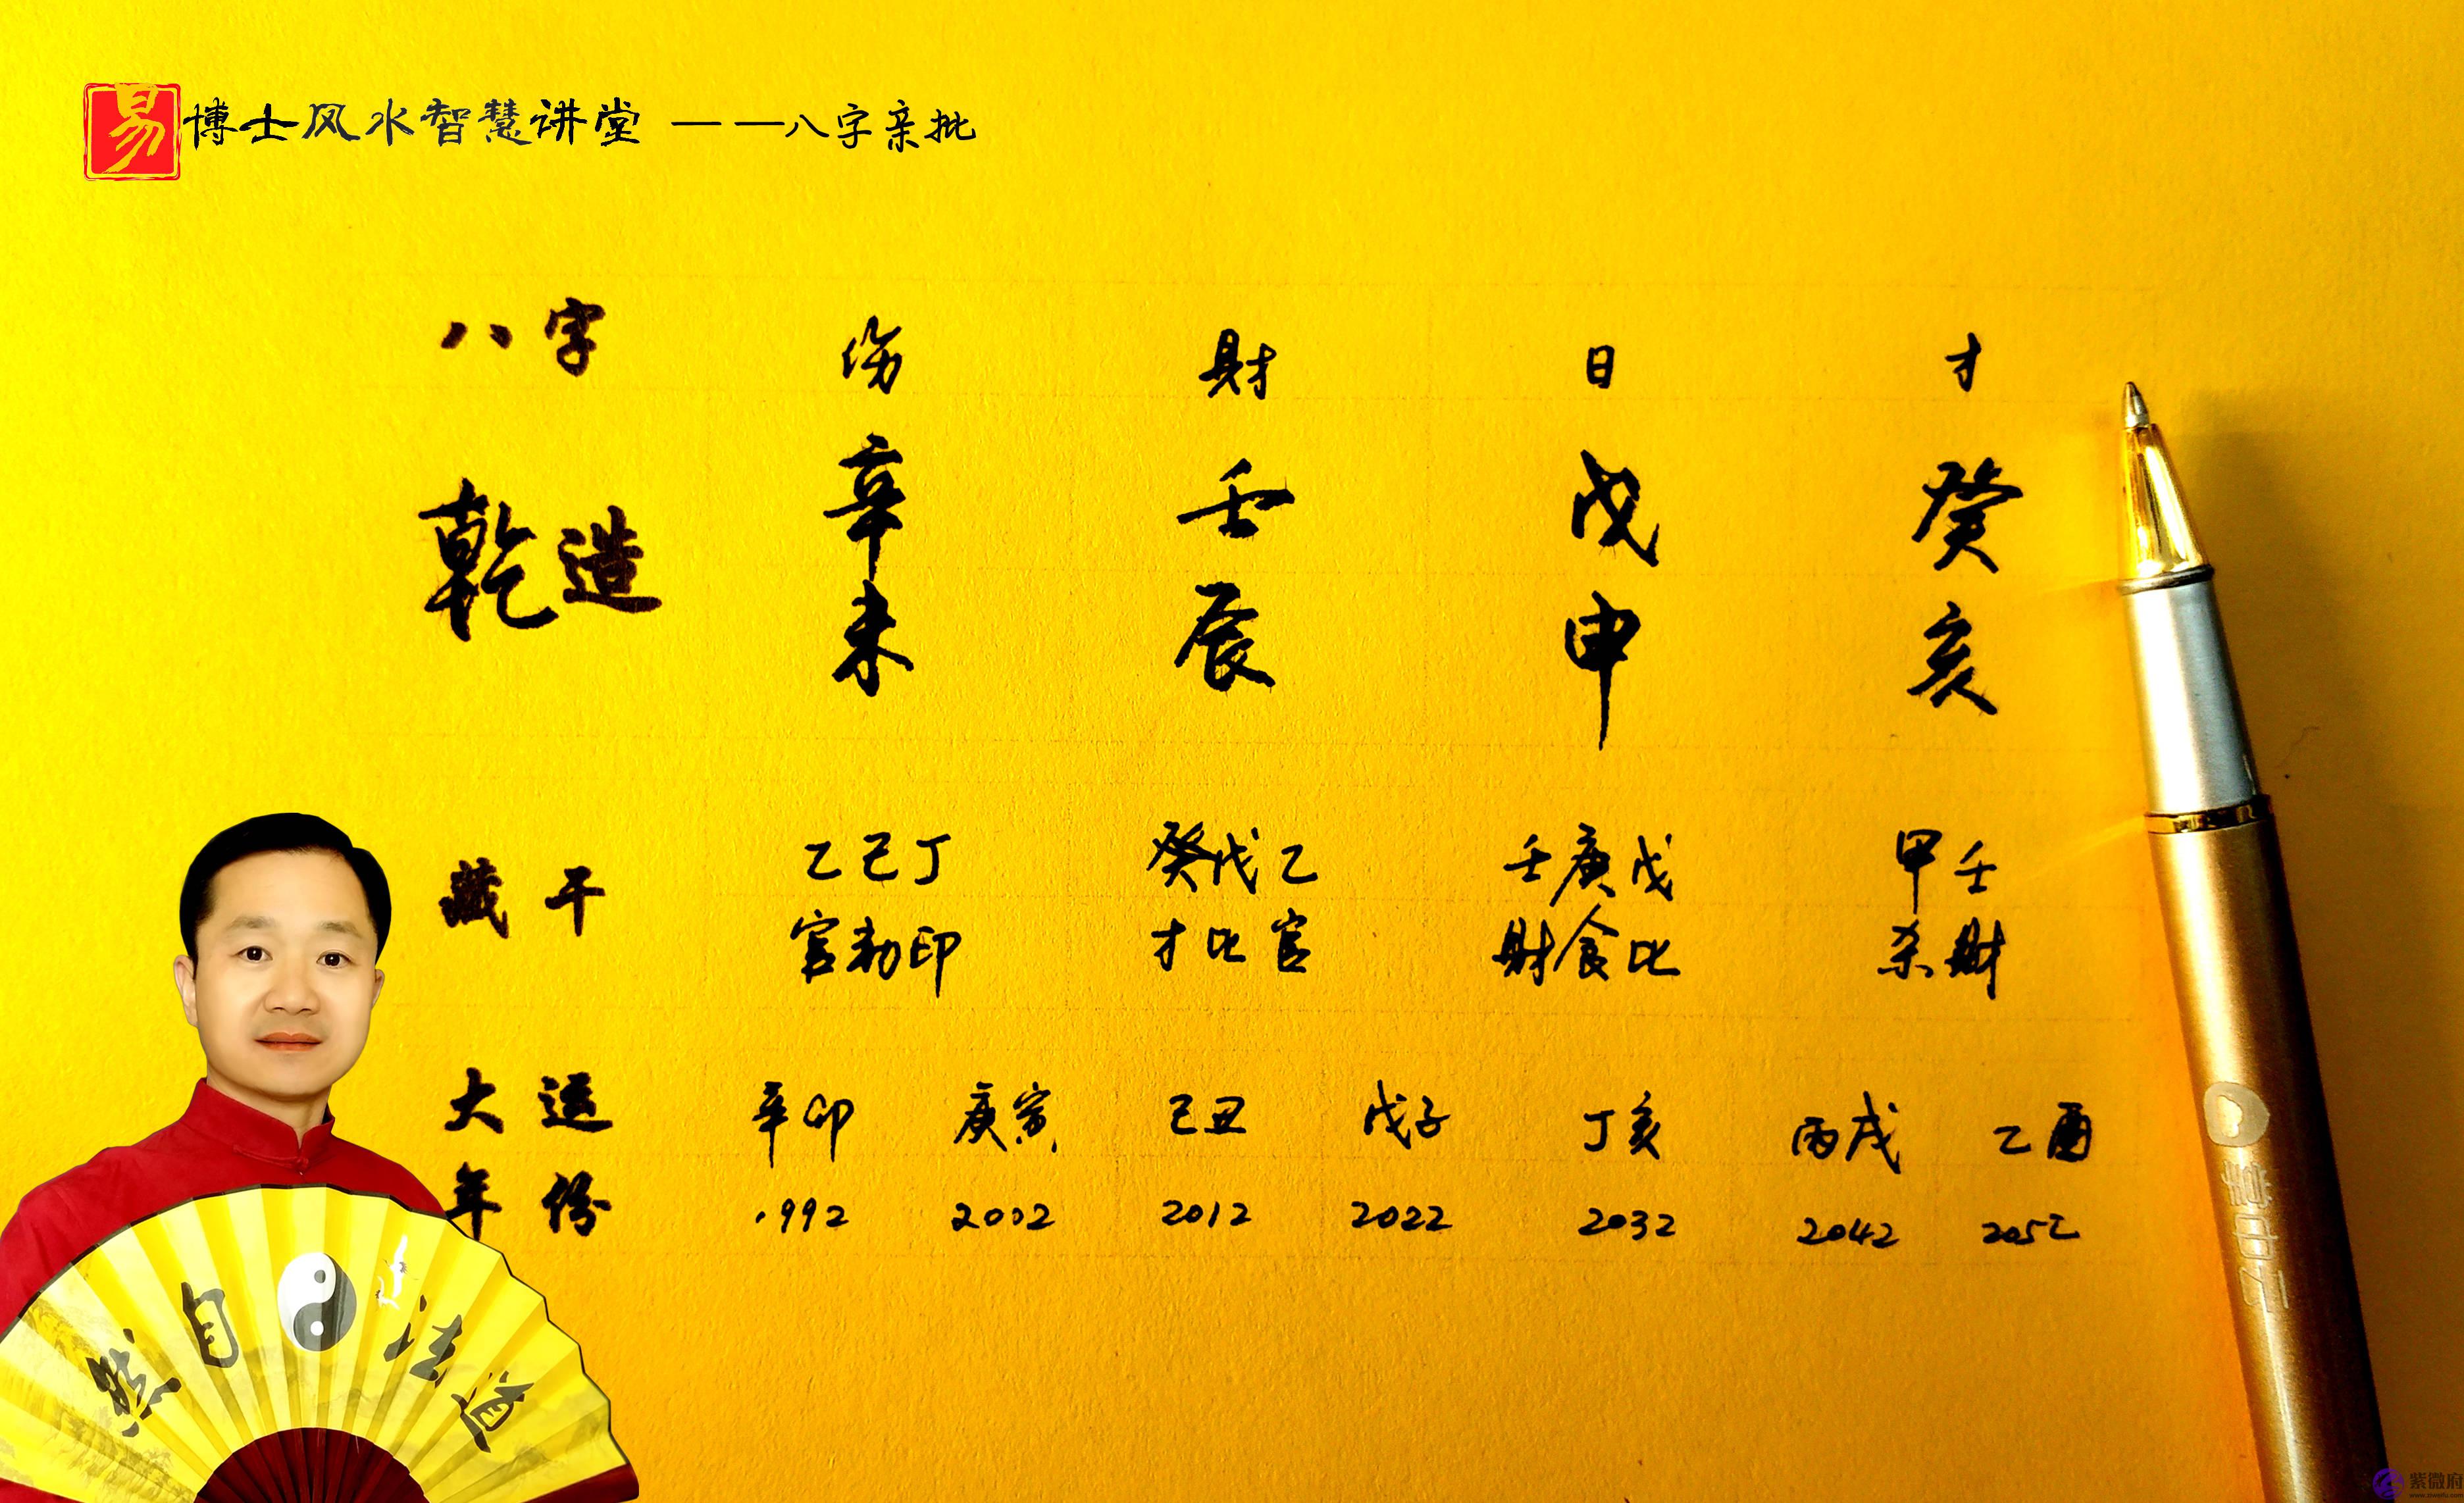 易博士风水智慧讲堂 ——八字亲批
八字 伤 財 日 才
乾造 辛 壬 戊 癸
未 辰 申 亥
藏干 乙己丁 癸戊乙 壬庚戊 甲壬
官劫印 才比官 財食比 杀財
大运 辛卯 庚寅 己丑 戊子 丁亥 丙戌 乙酉
年份 1992 2002 2012 2022 2032 2042 2052
道法自然
紫微府